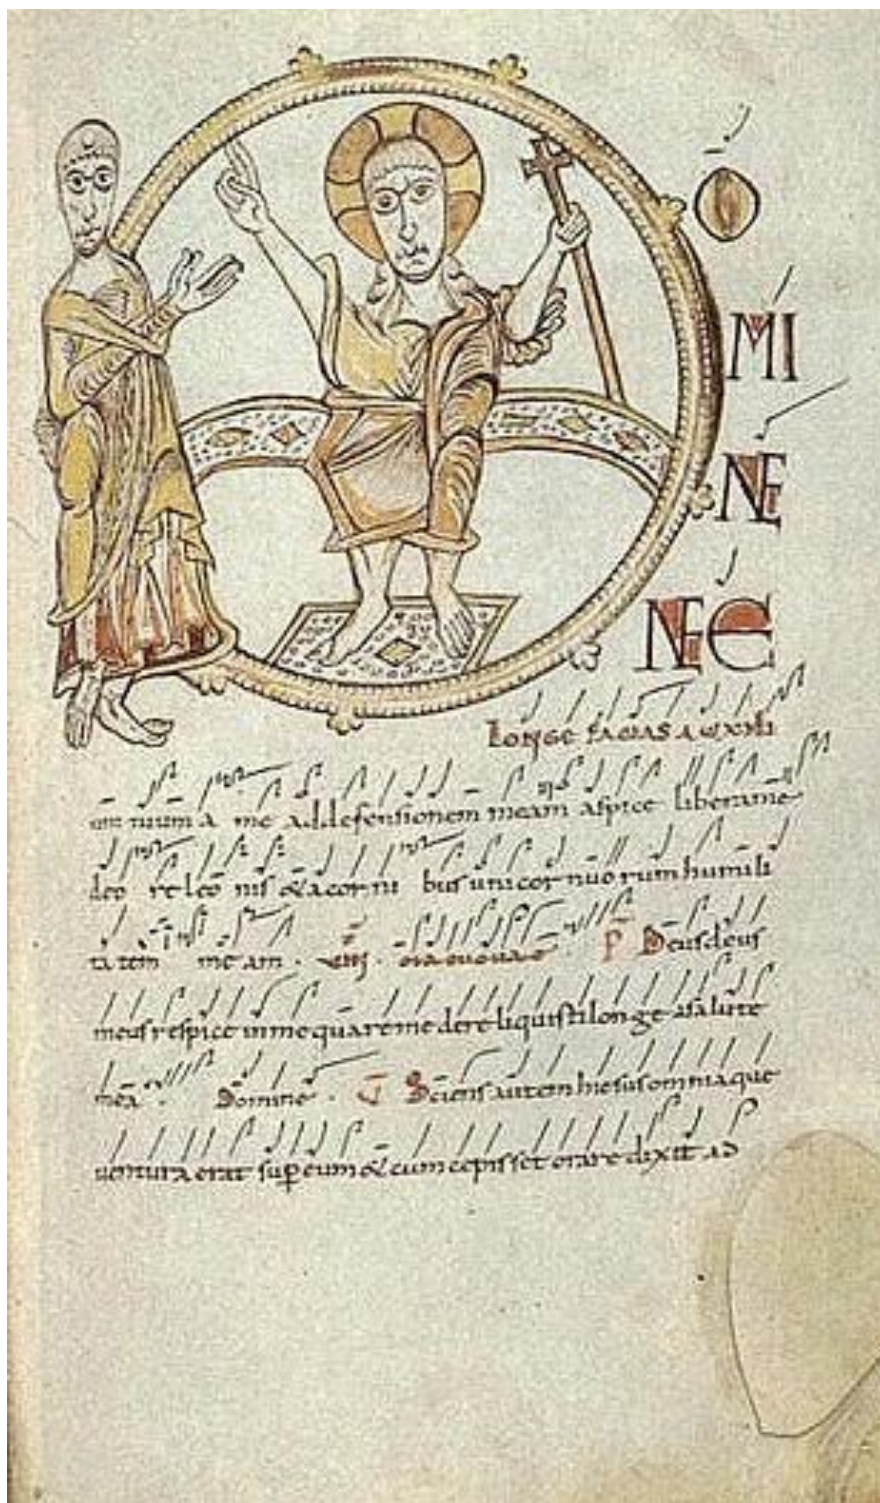 D
O
MI
NE
NE
LONGE FACIAS AUXILI
um tuum a me ad defensionem meam aspice libera me
deo re leo nis & a cor ni bus uni cor nuo rum humili
ta tem me am . euouae P Deus deus
meus respice in me quare me dereliquisti longe a salute
mea . Domine . V Sciens autem hiesus omnia que
uentura erat sup eum & cum cepisset orare dixit ad